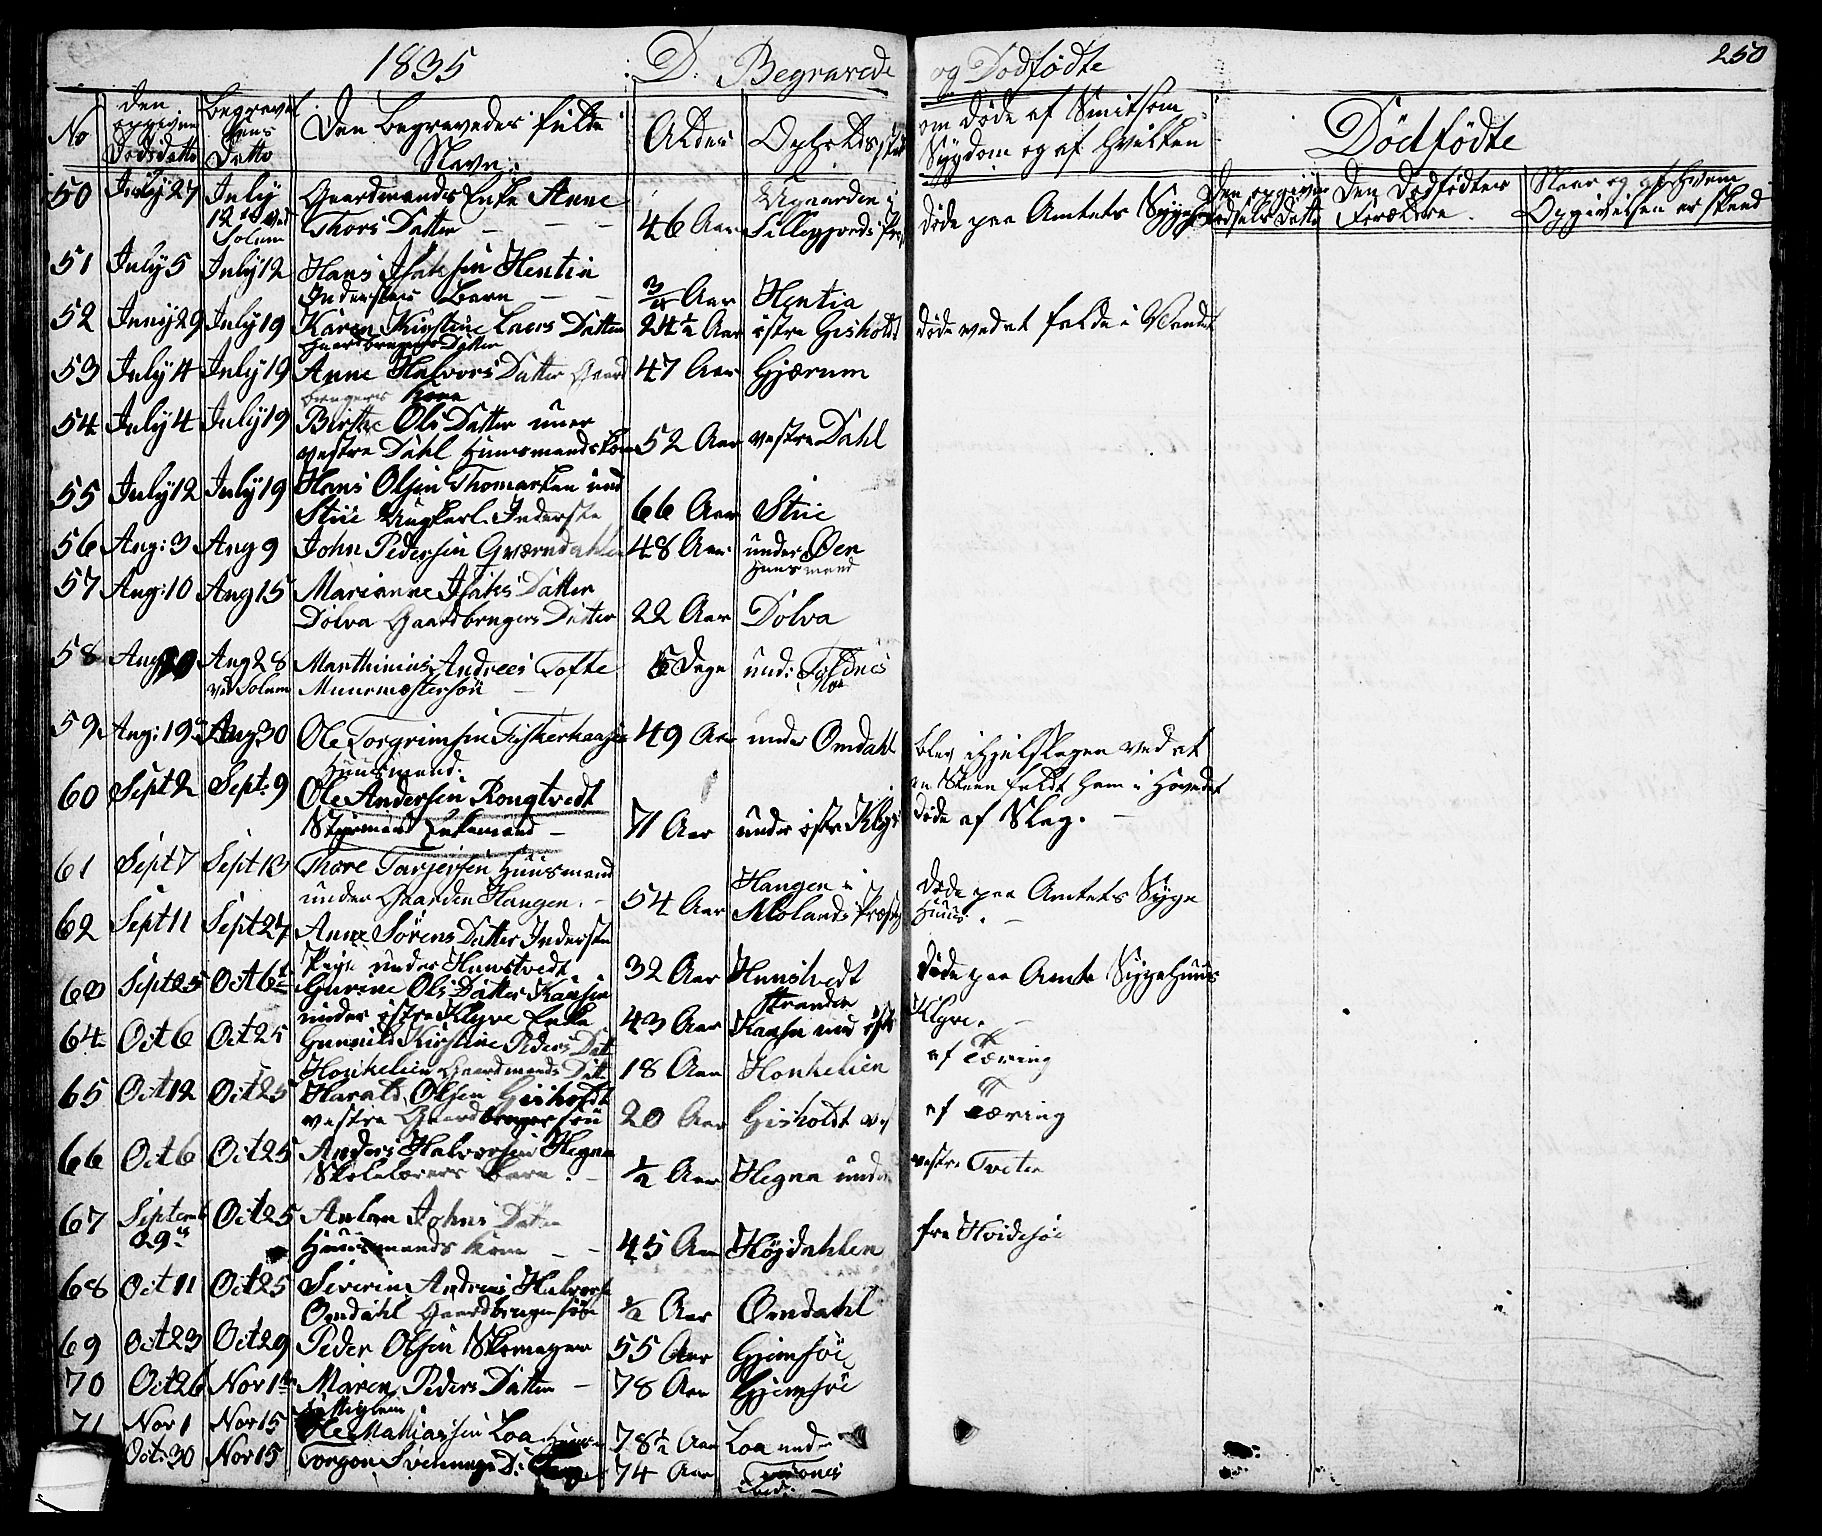 1835 D. Begravede og Dødfødte 250
No
den opgivne Dødsdatto
Begravel sens Datto
Den begravedes fulde Navn:
Alder
Opholdssted
om døde af Smitsom Sygdom og af hvilken
Dødfødte
Den opgivne Fødsels Datto
Den Dødfødtes Forældre.
Naar og af hvem Opgivelsen er skeed
50 July 27 July 12te ved Solum Gaardmands Enke Anne Thors Datter 46 Aar i Sillegjords døde paa Amtets
51 July 5 July 12 Hans Isaksen Hentia Inderstes barn 3/4 Aar Hentia
52 Juny 29 July 19 Karen Kirstine Lars Datter Gaardbrugers Datter 24 1/2 Aar østre Gisholdt døde ved at falde i Vandet
53 July 4 July 19 Anne Halvors Datter Gaard brugers kone 47 Aar Gjærum
54 July 4 July 19 Birthe Ols Datter vestre Dahl Huusmands kone 52 Aar vestre Dahl
55 July 12 July 19 Hans Olsen Thomasken und Stiie Ungkarl. Inderste 66 Aar Stiie
56 Aug: 3 Aug 9 John Pedersen Qværndahlen 48 Aar under Øen Huusmand
57 Aug: 10 Aug 15 Marianne Isaks Datter Dolva Gaardbrugers Datter 22 Aar Dolva
58 Aug 20 Aug 28 ved Solum Marthinius Andrees Tofte Muurmestersøn 5 Dage und:
59 Aug: 19de Aug 30 Ole Torgrimsen Fiskerhaasen Huusmand. 49 Aar under Omdahl blev ihjelslagen ved at en Steen faldt ham i Hovedet
60 Sept 2 Sept: 9 Ole Andersen Rongtvedt Styrmand Enkemand 71 Aar under østre Klyve døde af Slag.
61 Sept 7 Sept 13 Thore Tarjeisen Huusmand under Gaarden Haugen. 54 Aar Haugen i Molands Præstg døde paa Amtets Syge Huus.
62 Sept 11 Sept 27 Anne Sørens Datter Inderste Pige under Hunstvedt 32 Aar Hunstvedt døde paa Amts Sygehuus
63 Sept 25 Oct 6te Gurine Ols Datter Kaasen under østre Klyve Enke 43 Aar Stranden Kaasen und østre Klyve.
64 Oct 6 Oct 25 Gunnild Kirstine Peders Datt Honkelien Gaardmands Datt 18 Aar Honkelien af Tæring
65 Oct 12 Oct 25 Harald Olsen Gisholdt vestre Gaardbruger søn 20 Aar Gisholdt vest af Tæring
66 Oct 6 Oct 25 Anders Halvorsen Hegna Skolelærers barn. 1/2 Aar Hegna under vestre Tveten
67 Septemb 29de Oct 25 Aslau Johns Datter Huusmands kone 45 Aar Højdahlen fra Hvidesøe
68 Oct 11 Oct 25 Severin Andreas Halvors Omdahl Gaardbruger søn 1/2 Aar Omdahl
69 Oct 23 Oct 29 Peder Olsen Skomager 55 Aar Gjemsøe
70 Oct 26 Nov 1te Maren Peders Datter 78 Aar Gjemsøe
71 Nov 1 Nov 15 Ole Mathiassen Loa 78 1/2 Aar Loa under
Oct: 30 Nov 15 Torgon Svennungs D: 74 Aar ibid: